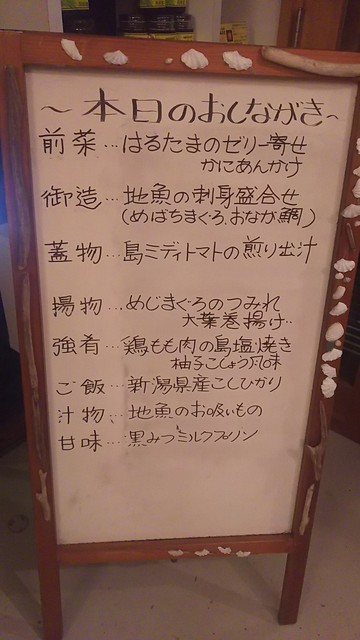 ～本日のおしながき～
前菜…はるたまのゼリー寄せ
かにあんかけ
御造…地魚の刺身盛合せ
(めばちまぐろ、おなが鯛)
蓋物…島ミディトマトの煎り出汁
揚物…めじまぐろのつみれ
大葉巻揚げ…
強肴…鶏もも肉の島塩焼き
柚子こしょう風味
ご飯…新潟県産こしひかり
汁物…地魚のお吸いもの
甘味…黒みつミルクプリン